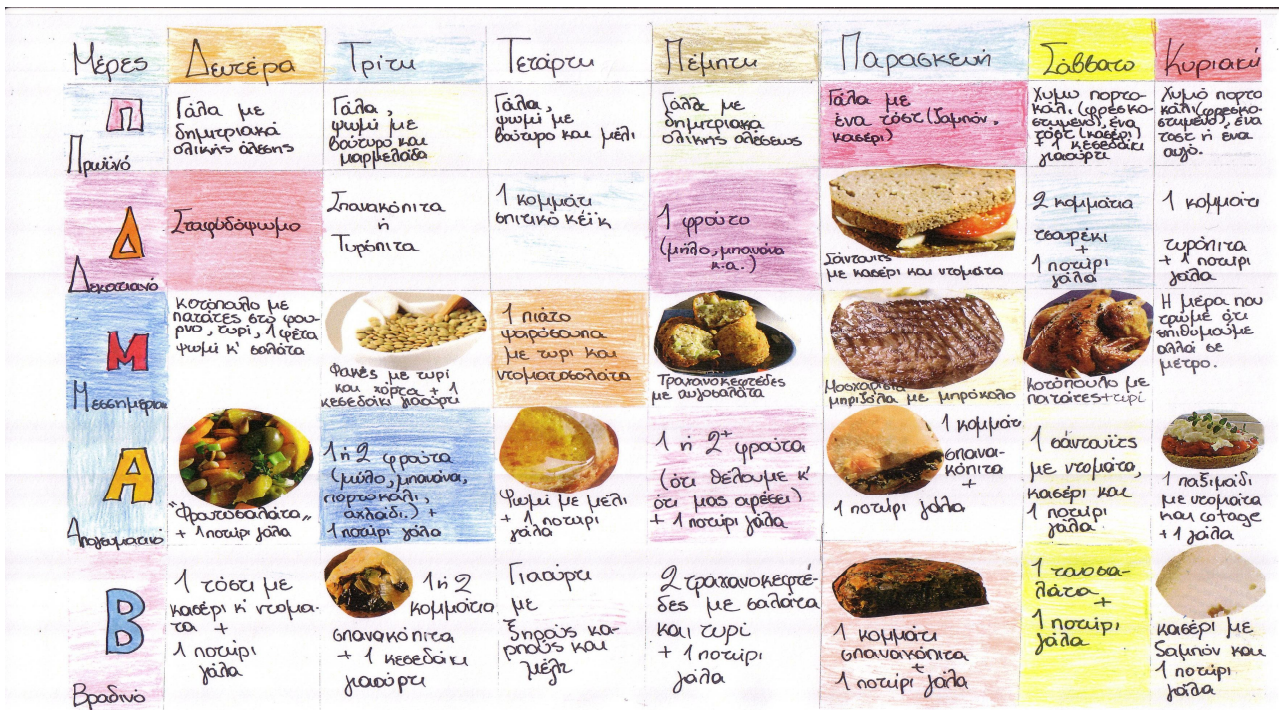 Μέρες Δευτέρα Τρίτη Τετάρτη Πέμπτη Παρασκευή Σάββατο Κυριακή
Π
Πρωϊνό
Γάλα με
δημητριακά
ολικής άλεσης
Γάλα,
ψωμί με
βούτυρο και
μαρμελάδα
Γάλα,
ψωμί με
βούτυρο και μέλι
Γάλα με
δημητριακα
ολικής αλέσεως
Γάλα με
ένα τόστ (ζαμπόν,
κασέρι)
Χυμο πορτο-
κάλι (φρεσκο-
στιμένο), ένα
τόστ (κασέρι)
+ 1 κεσεδάκι
γιαούρτι
Χυμό πορτο
κάλι (φρεσκο-
στιμένο), ένα
τοστ ή ένα
αυγό.
Δ
Δεκατιανό
Σταφυδόψωμο
Σπανακόπιτα
ή
Τυρόπιτα
1 κομμάτι
σπιτικό κέϊκ
1 φρούτο
(μήλο, μπανάνα
κ.α.)
Σάντουιτς
με κασέρι και ντομάτα
2 κομμάτια
τσουρέκι
+
1 ποτήρι
γάλα
1 κομμάτι
τυρόπιτα
+ 1 ποτήρι
γάλα
Μ
Μεσσημέρια
Κοτόπουλο με
πατάτες στο φουρ-
νο, τυρι, 1 φέτα
ψωμί κ' σαλάτα
Φακές με τυρί
και χόρτα + 1
κεσεδάκι γιαούρτι
1 πιάτο
ψαρόσουπα
με τυρι και
ντοματοσαλάτα
Τραχανοκεφτέδες
με αυγοσαλάτα
Μοσχαρίσια
μπριζόλα με μπρόκολο
Κοτόπουλο με
πατάτες+τυρί
Η μέρα που
τρώμε ότι
επιθυμούμε
αλλά σε
μέτρο.
Α
Απογευματινό
"Φρουτοσαλάτα"
+ 1 ποτήρι γάλα
1 ή 2 φρούτα
(μύλο, μπανάνα,
πορτοκάλι,
αχλάδι) +
1 ποτήρι γάλα
Ψωμί με μέλι
+ 1 ποτήρι
γάλα
1 ή 2+ φρούτα
(ότι θέλουμε κ'
ότι μας αρέσει)
+ 1 ποτήρι γάλα
1 κομμάτι
σπανα-
κόπιτα
+
1 ποτήρι γάλα
1 σάντουϊτς
με ντομάτα,
κασέρι και
1 ποτήρι
γάλα
1 παξιμάδι
με ντομάτα
και cotage
+ 1 γάλα
Β
Βραδινό
1 τόστι με
κασέρι κ' ντομα-
τα +
1 ποτήρι
γάλα
1 ή 2
κομμάτια
σπανακόπιτα
+ 1 κεσεδάκι
γιαούρτι
Γιαούρτι
με
ξηρούς κα-
ρπούς και
μέλι
2 τραχανοκεφτέ-
δες με σαλάτα
και τυρί
+ 1 ποτήρι
γάλα
1 κομμάτι
σπανακόπιτα
+
1 ποτήρι γάλα
1 τονοσα-
λάτα
+
1 ποτήρι
γάλα
κασέρι με
ζαμπόν και
1 ποτήρι
γάλα